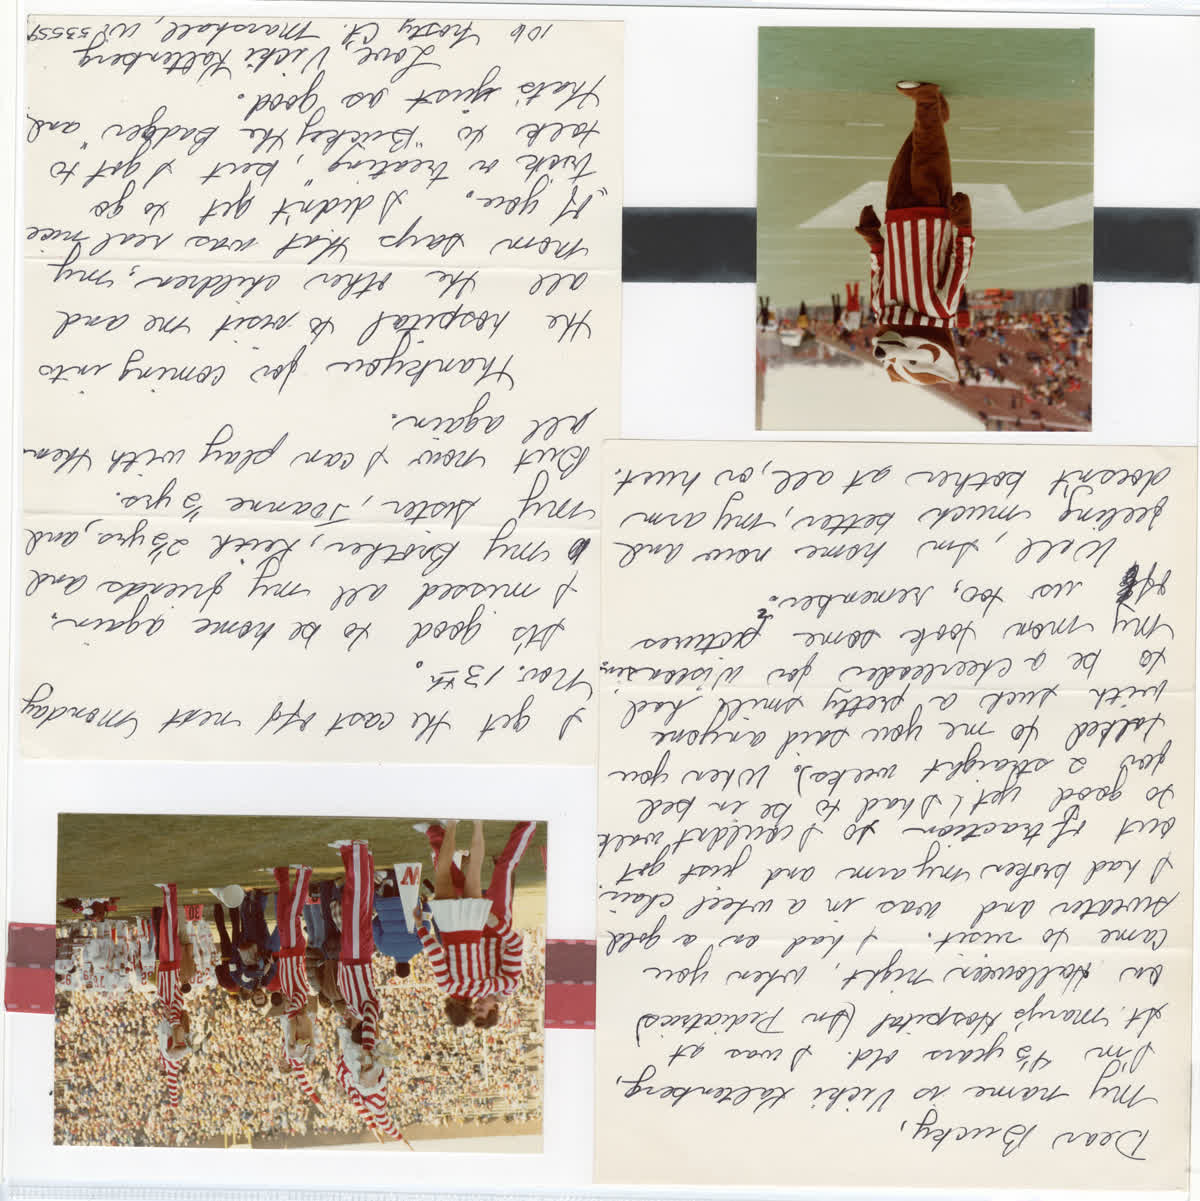 Dear Bucky,
My name is Vicki Kaltenberg,
I'm 4½ years old. I was at
St. Mary's Hospital (In Pediatrics)
on Halloween night, when you
came to visit. I had on a gold
sweater and was in a wheel chair.
I had broken my arm and just got
out of traction so I couldn't walk
to good yet (I had to be in bed
for 2 straight weeks). When you
talked to me you said anyone
with such a pretty smile had
to be a cheerleader for Wisconsin.
My mom took some pictures
of us too, remember?
Well, I'm home now and
feeling much better, my arm
doesn't bother at all, or hurt.
I get the cast off next Monday
Nov. 13th.
It's good to be home again.
I missed all my friends and
my Brother, Keith 2½ yrs, and
my sister, Joanne ½ yrs.
But now I can play with them
all again.
Thankyou for coming into
the hospital to visit me and
all the other children, my
mom says that was real nice
of you. I didn't get to go
"trick or treating," but I got to
talk to "Bucky the Badger" and
that's just as good.
Love, Vicki Kaltenberg
106 Frosty Ct. Marshall, WI 53559
W
30